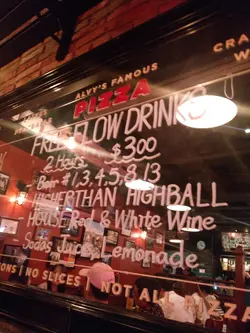 ALVY'S FAMOUS
PIZZA
CRA
W
FREE FLOW DRINKS
2 Hours $300
Beer #1,3,4,5,8,13
HIGHERTHAN HIGHBALL
HOUSE Red & White Wine
Sodas, Juice, Lemonade
ONS | NO SLICES
NOT AL